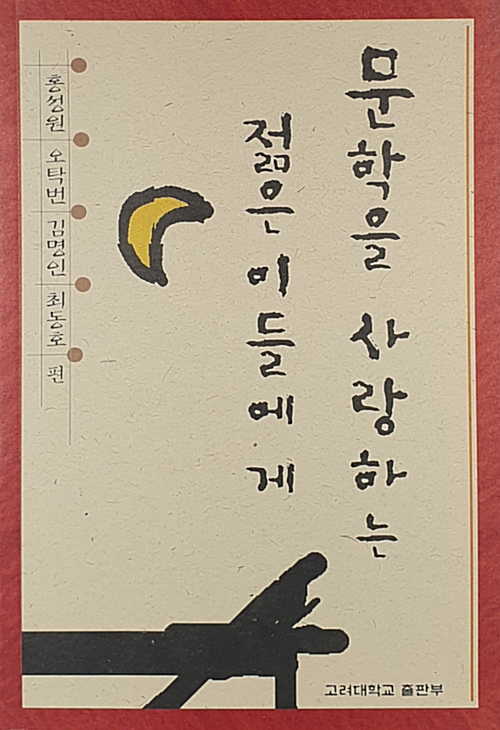 문학을 사랑하는
젊은 이들에게
홍성원 오탁번 김명인 최동호 편
고려대학교 출판부